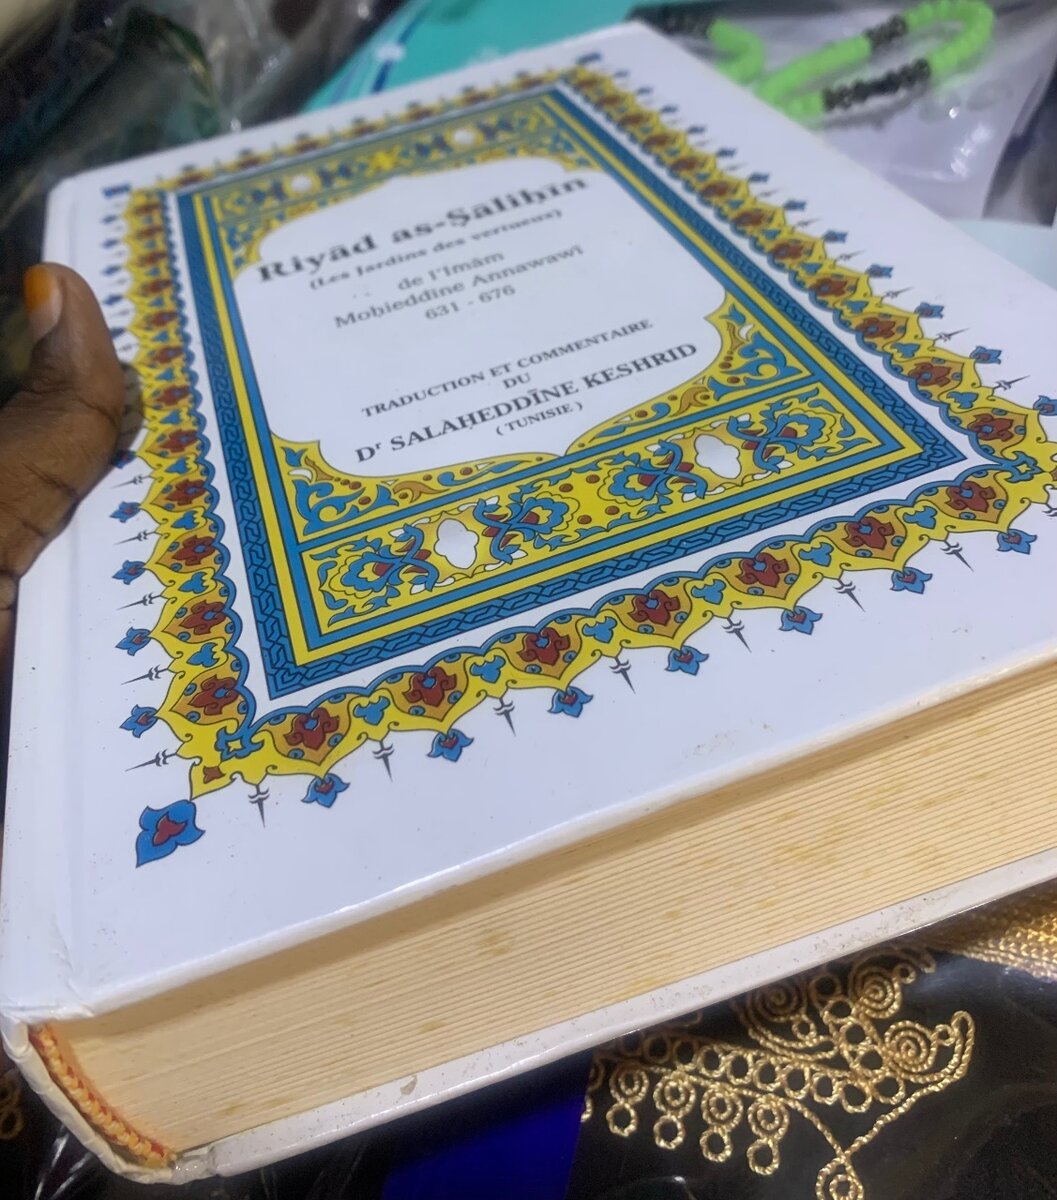 Riyād as-Ṣāliḥīn
(Les Jardins des vertueux)
de l'Imām
Moḥieddīne Annawawī
631 - 676
TRADUCTION ET COMMENTAIRE
DU
Dʳ SALAHEDDĪNE KESHRID
( TUNISIE )